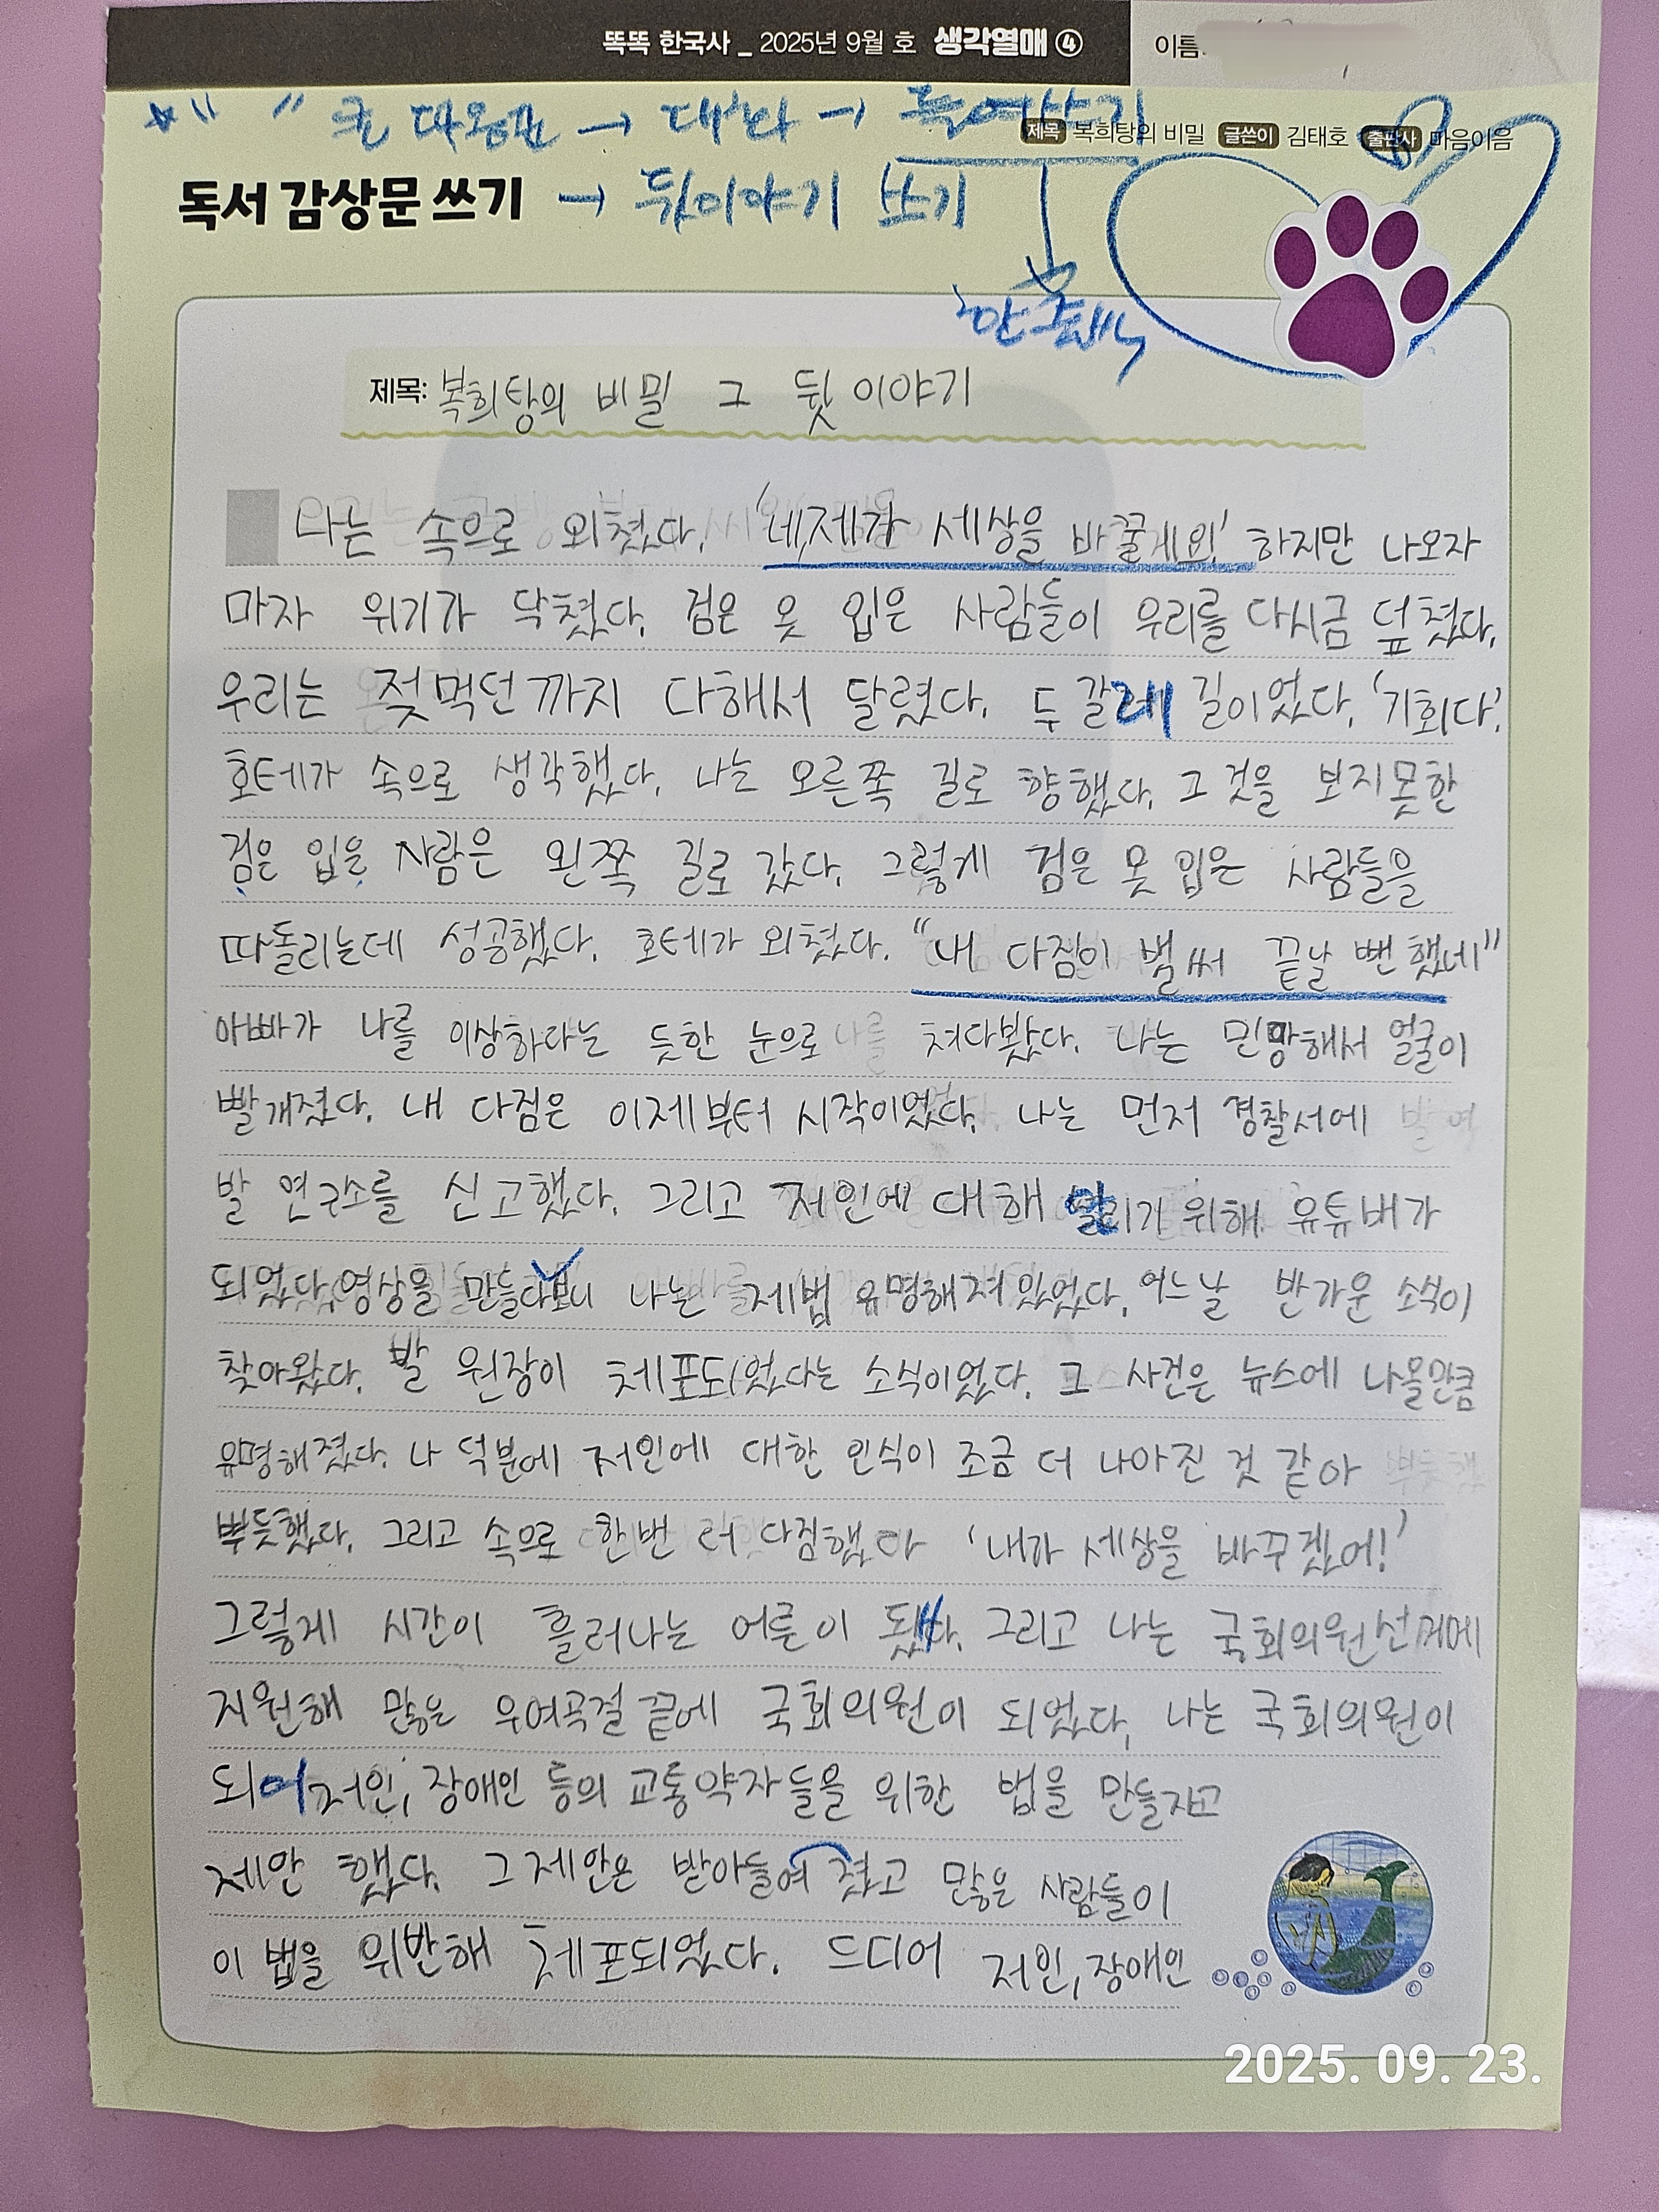 똑똑 한국사 _ 2025년 9월 호 생각열매 ④ 이름
" " 큰 따옴표 → 대화 → 들여쓰기
제목 복희탕의 비밀 글쓴이 김태호 출판사 마음이음
독서 감상문 쓰기 → 뒷이야기 쓰기
제목: 복희탕의 비밀 그 뒷 이야기
나는 속으로 외쳤다. '네,제가 세상을 바꿀게요!' 하지만 나오자
마자 위기가 닥쳤다. 검은 옷 입은 사람들이 우리를 다시금 덮쳤다.
우리는 젖먹던 까지 다해서 달렸다. 두 갈래 길이었다. '기회다'.
호테가 속으로 생각했다. 나는 오른쪽 길로 향했다. 그 것을 보지못한
검은 입은 사람은 왼쪽 길로 갔다. 그렇게 검은 옷 입은 사람들을
따돌리는데 성공했다. 호테가 외쳤다. "내 다짐이 벌써 끝날 뻔 했네"
아빠가 나를 이상하다는 듯한 눈으로 쳐다봤다. 나는 민망해서 얼굴이
빨개졌다. 내 다짐은 이제부터 시작이었다. 나는 먼저 경찰서에
발 연구소를 신고했다. 그리고 저인에 대해 알리기 위해 유튜버가
되었다. 영상을 만들다보니 나는 제법 유명해져 있었다. 어느 날 반가운 소식이
찾아왔다. 발 원장이 체포되었다는 소식이었다. 그 사건은 뉴스에 나올만큼
유명해졌다. 나 덕분에 저인에 대한 인식이 조금 더 나아진 것 같아
뿌듯했다. 그리고 속으로 한번 더 다짐했다 '내가 세상을 바꾸겠어!'
그렇게 시간이 흘러나는 어른이 됐다. 그리고 나는 국회의원선거에
지원해 많은 우여곡절 끝에 국회의원이 되었다, 나는 국회의원이
되어 저인, 장애인 등의 교통약자들을 위한 법을 만들자고
제안 했다. 그 제안은 받아들여 졌고 많은 사람들이
이 법을 위반해 체포되었다. 드디어 저인, 장애인
2025. 09. 23.